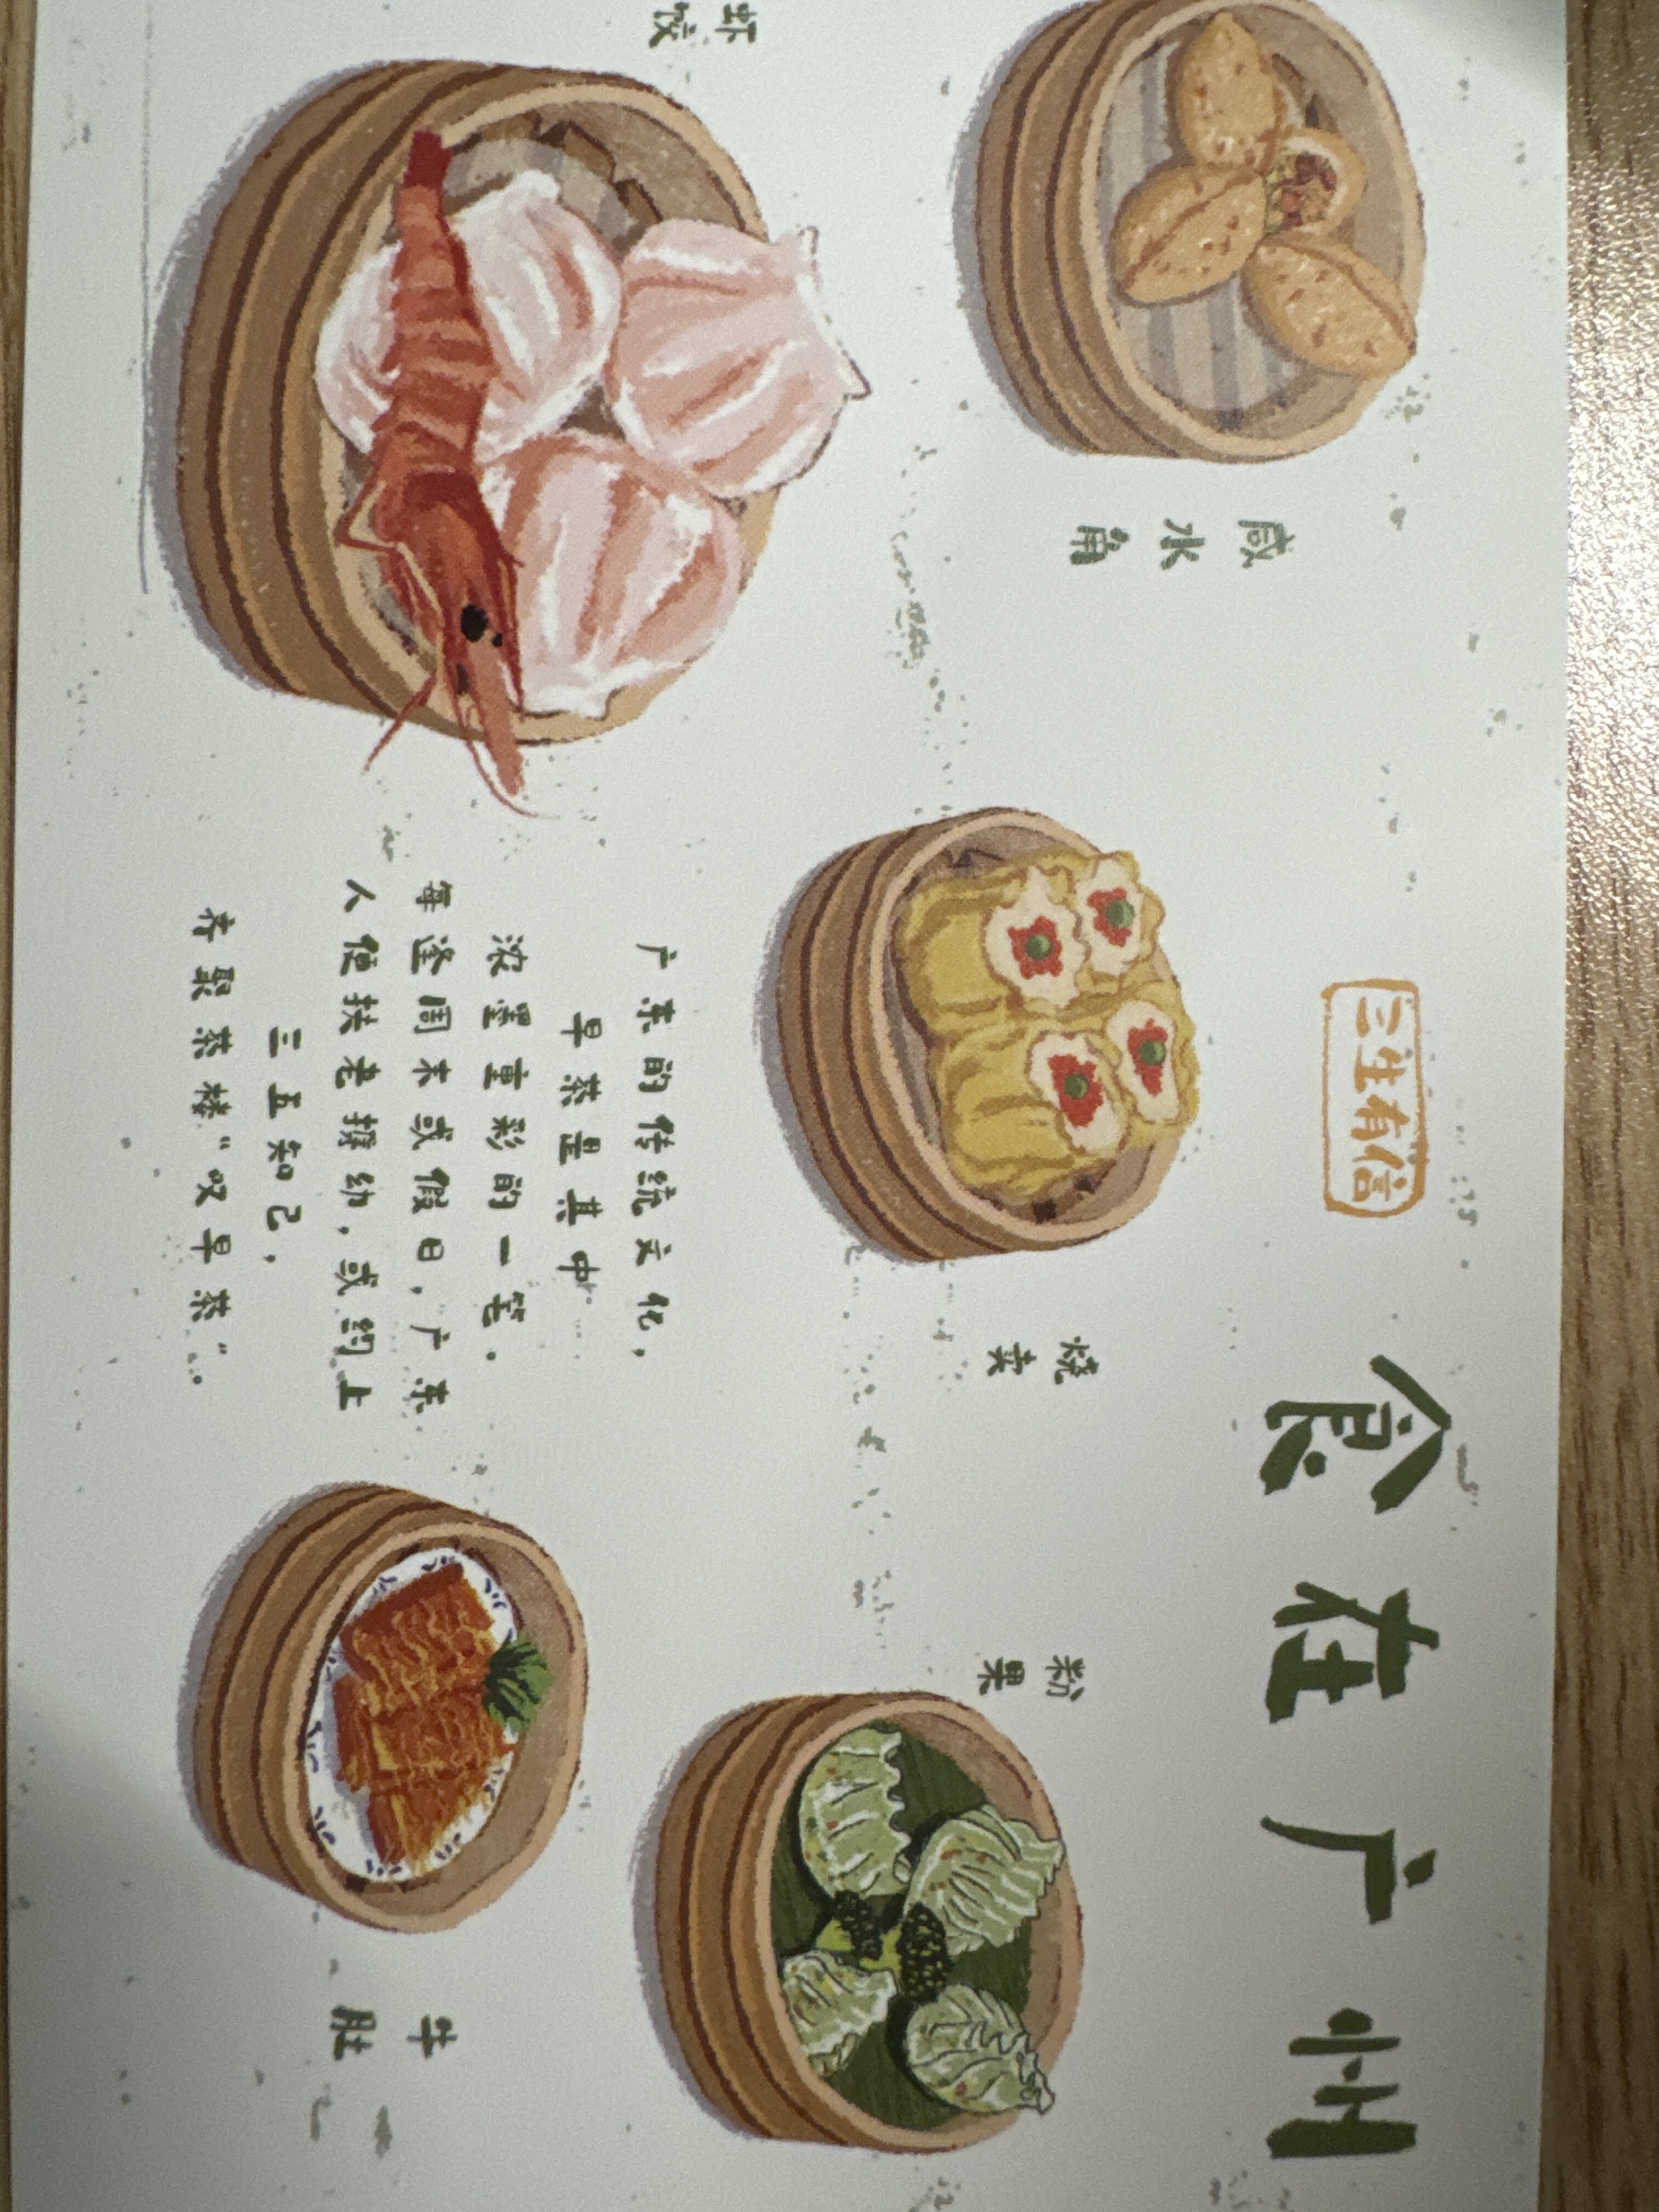 食在广州
三生有信
咸水角
烧卖
粉果
虾饺
广东的传统文化，
早茶是其中
浓墨重彩的一笔。
每逢周末或假日，广东
人便扶老携幼，或约上
三五知己，
齐聚茶楼“叹早茶”。
牛肚